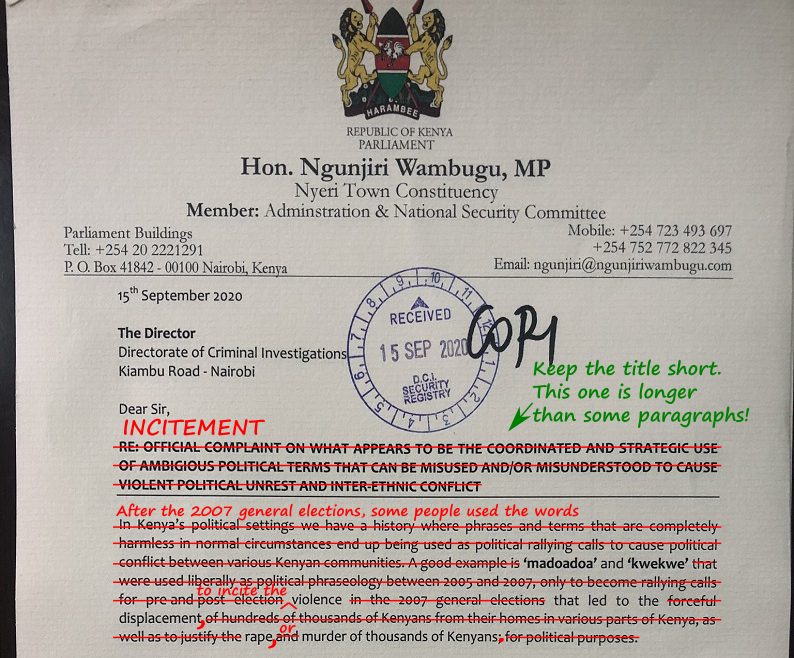 HARAMBEE
REPUBLIC OF KENYA
PARLIAMENT
Hon. Ngunjiri Wambugu, MP
Nyeri Town Constituency
Member: Adminstration & National Security Committee
Parliament Buildings
Tell: +254 20 2221291
P. O. Box 41842 - 00100 Nairobi, Kenya
Mobile: +254 723 493 697
+254 752 772 822 345
Email: ngunjiri@ngunjiriwambugu.com
15th September 2020
The Director
Directorate of Criminal Investigations
Kiambu Road - Nairobi
1 2 3 4 5 6 7 8 9 10 11 12
RECEIVED
15 SEP 2020
D.C.I.
SECURITY
REGISTRY
COPY
Keep the title short.
This one is longer
than some paragraphs!
Dear Sir,
INCITEMENT
RE: OFFICIAL COMPLAINT ON WHAT APPEARS TO BE THE COORDINATED AND STRATEGIC USE
OF AMBIGIOUS POLITICAL TERMS THAT CAN BE MISUSED AND/OR MISUNDERSTOOD TO CAUSE
VIOLENT POLITICAL UNREST AND INTER-ETHNIC CONFLICT
After the 2007 general elections, some people used the words
In Kenya's political settings we have a history where phrases and terms that are completely
harmless in normal circumstances end up being used as political rallying calls to cause political
conflict between various Kenyan communities. A good example is 'madoadoa' and 'kwekwe' that
were used liberally as political phraseology between 2005 and 2007, only to become rallying calls
to incite the
for pre and post election violence in the 2007 general elections that led to the forceful
displacement, of hundreds of thousands of Kenyans from their homes in various parts of Kenya, as
or
well as to justify the rape, and murder of thousands of Kenyans; for political purposes.